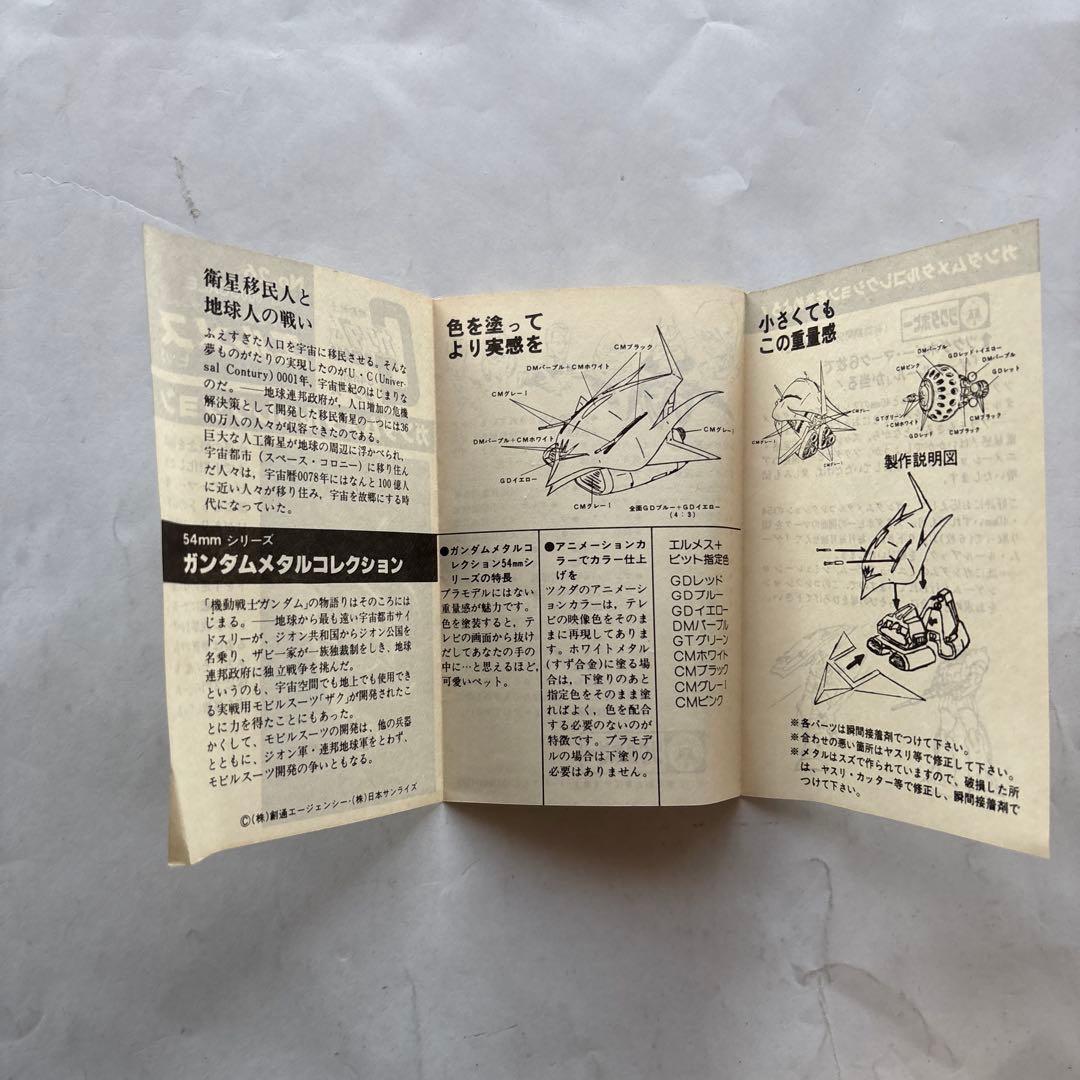 衛星移民人と
地球人の戦い
ふえすぎた人口を宇宙に移民させる。そんな
夢ものがたりの実現したのがU・C(Univer-
sal Contury) 0001年，宇宙世紀のはじまりな
のだ。——地球連邦政府が，人口増加の危機
解決策として開発した移民衛星の一つには36
00万人の人々が収容できたのである。
巨大な人工衛星が地球の周辺に浮かべられ，
宇宙都市（スペース・コロニー）に移り住ん
だ人々は，宇宙暦0078年にはなんと100億人
に近い人々が移り住み，宇宙を故郷にする時
代になっていた。
54mm シリーズ
ガンダムメタルコレクション
「機動戦士ガンダム」の物語りはそのころには
じまる。——地球から最も遠い宇宙都市サイ
ドスリーが，ジオン共和国からジオン公国を
名乗り，ザビー家が一族独裁制をしき，地球
連邦政府に独立戦争を挑んだ。
というのも，宇宙空間でも地上でも使用でき
る実戦用モビルスーツ「ザク」が開発されたこ
とに力を得たことにもあった。
かくして，モビルスーツの開発は，他の兵器
とともに，ジオン軍・連邦地球軍をとわず，
モビルスーツ開発の争いともなる。
©(株)創通エージェンシー・(株)日本サンライズ
色を塗って
より実感を
CMブラック
DMパープル+CMホワイト
CMグレーⅠ
DMパープル+CMホワイト
CMグレーⅠ
GDイエロー
CMグレーⅠ
全面GDブルー+GDイエロー
(4：3)
●ガンダムメタルコ
レクション54mmシ
リーズの特長
プラモデルにはない
重量感が魅力です。
色を塗装すると，テ
レビの画面から抜け
だしてあなたの手の
中に…と思えるほど，
可愛いペット。
●アニメーションカ
ラーでカラー仕上
げを
ツクダのアニメーシ
ョンカラーは，テレ
ビの映像色をそのま
まに再現してありま
す。ホワイトメタル
(すず合金)に塗る場
合は，下塗りのあと
指定色をそのまま塗
ればよく，色を配合
する必要のないのが
特徴です。プラモデ
ルの場合は下塗りの
必要はありません。
エルメス+
ビット指定色
GDレッド
GDブルー
GDイエロー
DMパープル
GTグリーン
CMホワイト
CMブラック
CMグレーⅠ
CMピンク
小さくても
この重量感
DMパープル
GDレッド+イエロー
DMパープル
CMピンク
GDレッド
GTグリーン
+CMホワイト
CMブラック
GDレッド
CMブラック
CMグレーⅠ
CMグレーⅠ
CMグレーⅠ
製作説明図
※各パーツは瞬間接着剤でつけて下さい。
※合わせの悪い箇所はヤスリ等で修正して下さい。
※メタルはスズで作られていますので，破損した所
は，ヤスリ・カッター等で修正し，瞬間接着剤で
つけて下さい。